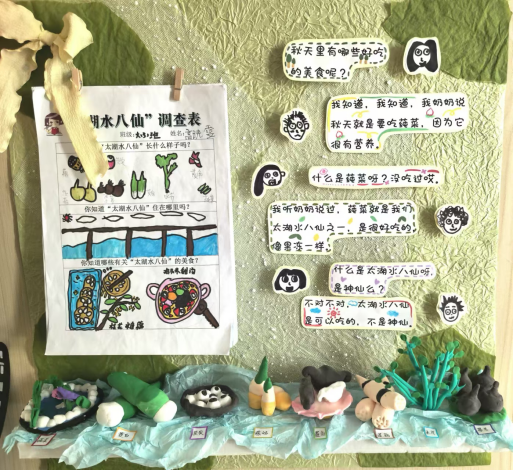 “太湖水八仙”调查表
班级：
姓名：
“太湖水八仙”长什么样子吗？
你知道“太湖水八仙”住在哪里吗？
你知道哪些有关“太湖水八仙”的美食？
秋天里有哪些好吃
的美食呢？
我知道，我知道，我奶奶说
秋天就是要吃莼菜，因为它
很有营养。
什么是莼菜呀？没吃过哎。
我听奶奶说过，莼菜就是我们
太湖水八仙之一，是很好吃的
像果冻一样。
什么是太湖水八仙呀，
是神仙么？
不对不对，太湖水八仙
是可以吃的，不是神仙。